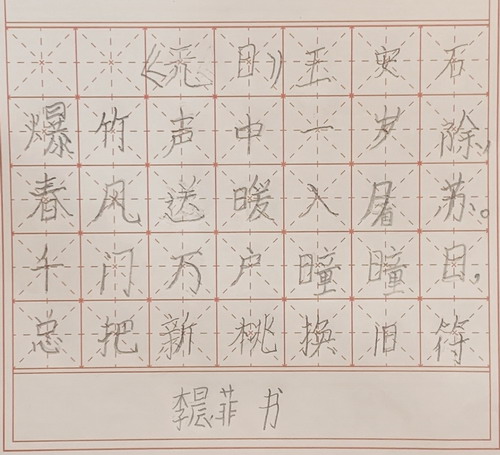 《元日》王安石
爆竹声中一岁除,
春风送暖入屠苏。
千门万户曈曈日,
总把新桃换旧符
李晨菲 书